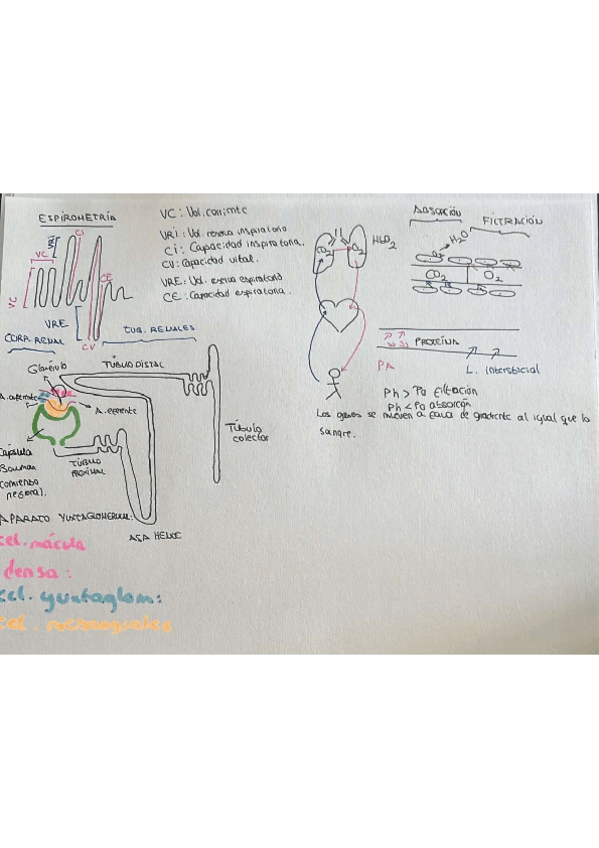 ESPIROMETRÍA
VRI
CI
VC
VC
CE
VRE
CV
VC: Vol. corriente
VRI: Vol. reserva inspiratorio
Ci: Capacidad inspiratoria.
CV: Capacidad vital.
VRE: Vol. reserva espiratorio
CE: Capacidad espiratoria.
CORP. RENAL
TUB. RENALES
Glomérulo
TÚBULO DISTAL
A. aferente
A. eferente
Cápsula
Bouman
(comienzo
nefrona).
TÚBULO
PROXIMAL
Túbulo
colector
ASA HENLE
APARATO YUXTAGLOMERULAR:
cel. mácula
densa:
cel. yuxtaglom:
cel. mesangiales
CO2
O2
HbO2
ABSORCIÓN
FILTRACIÓN
H2O
O2
CO2
O2
PROTEÍNA
PA
L. Intersticial
Ph > Po filtración
Ph < Po absorción
Los gases se mueven a favor de gradiente al igual que la
sangre.